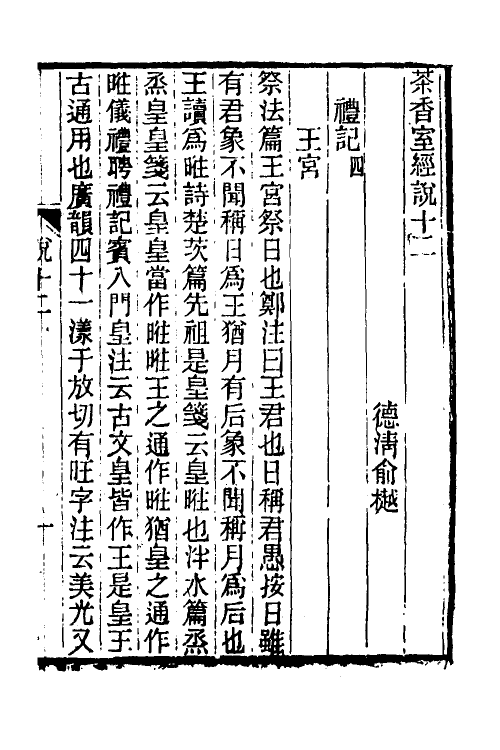 茶香室經說十二
德淸俞樾
禮記四
王宮
祭法篇王宮祭日也鄭注曰王君也日稱君愚按日雖
有君象不聞稱日爲王猶月有后象不聞稱月爲后也
王讀爲暀詩楚茨篇先祖是皇箋云皇暀也泮水篇烝
烝皇皇箋云皇皇當作暀暀王之通作暀猶皇之通作
暀儀禮聘禮記賓入門皇注云古文皇皆作王是皇王
古通用也廣韻四十一漾于放切有旺字注云美光又
說十二
一